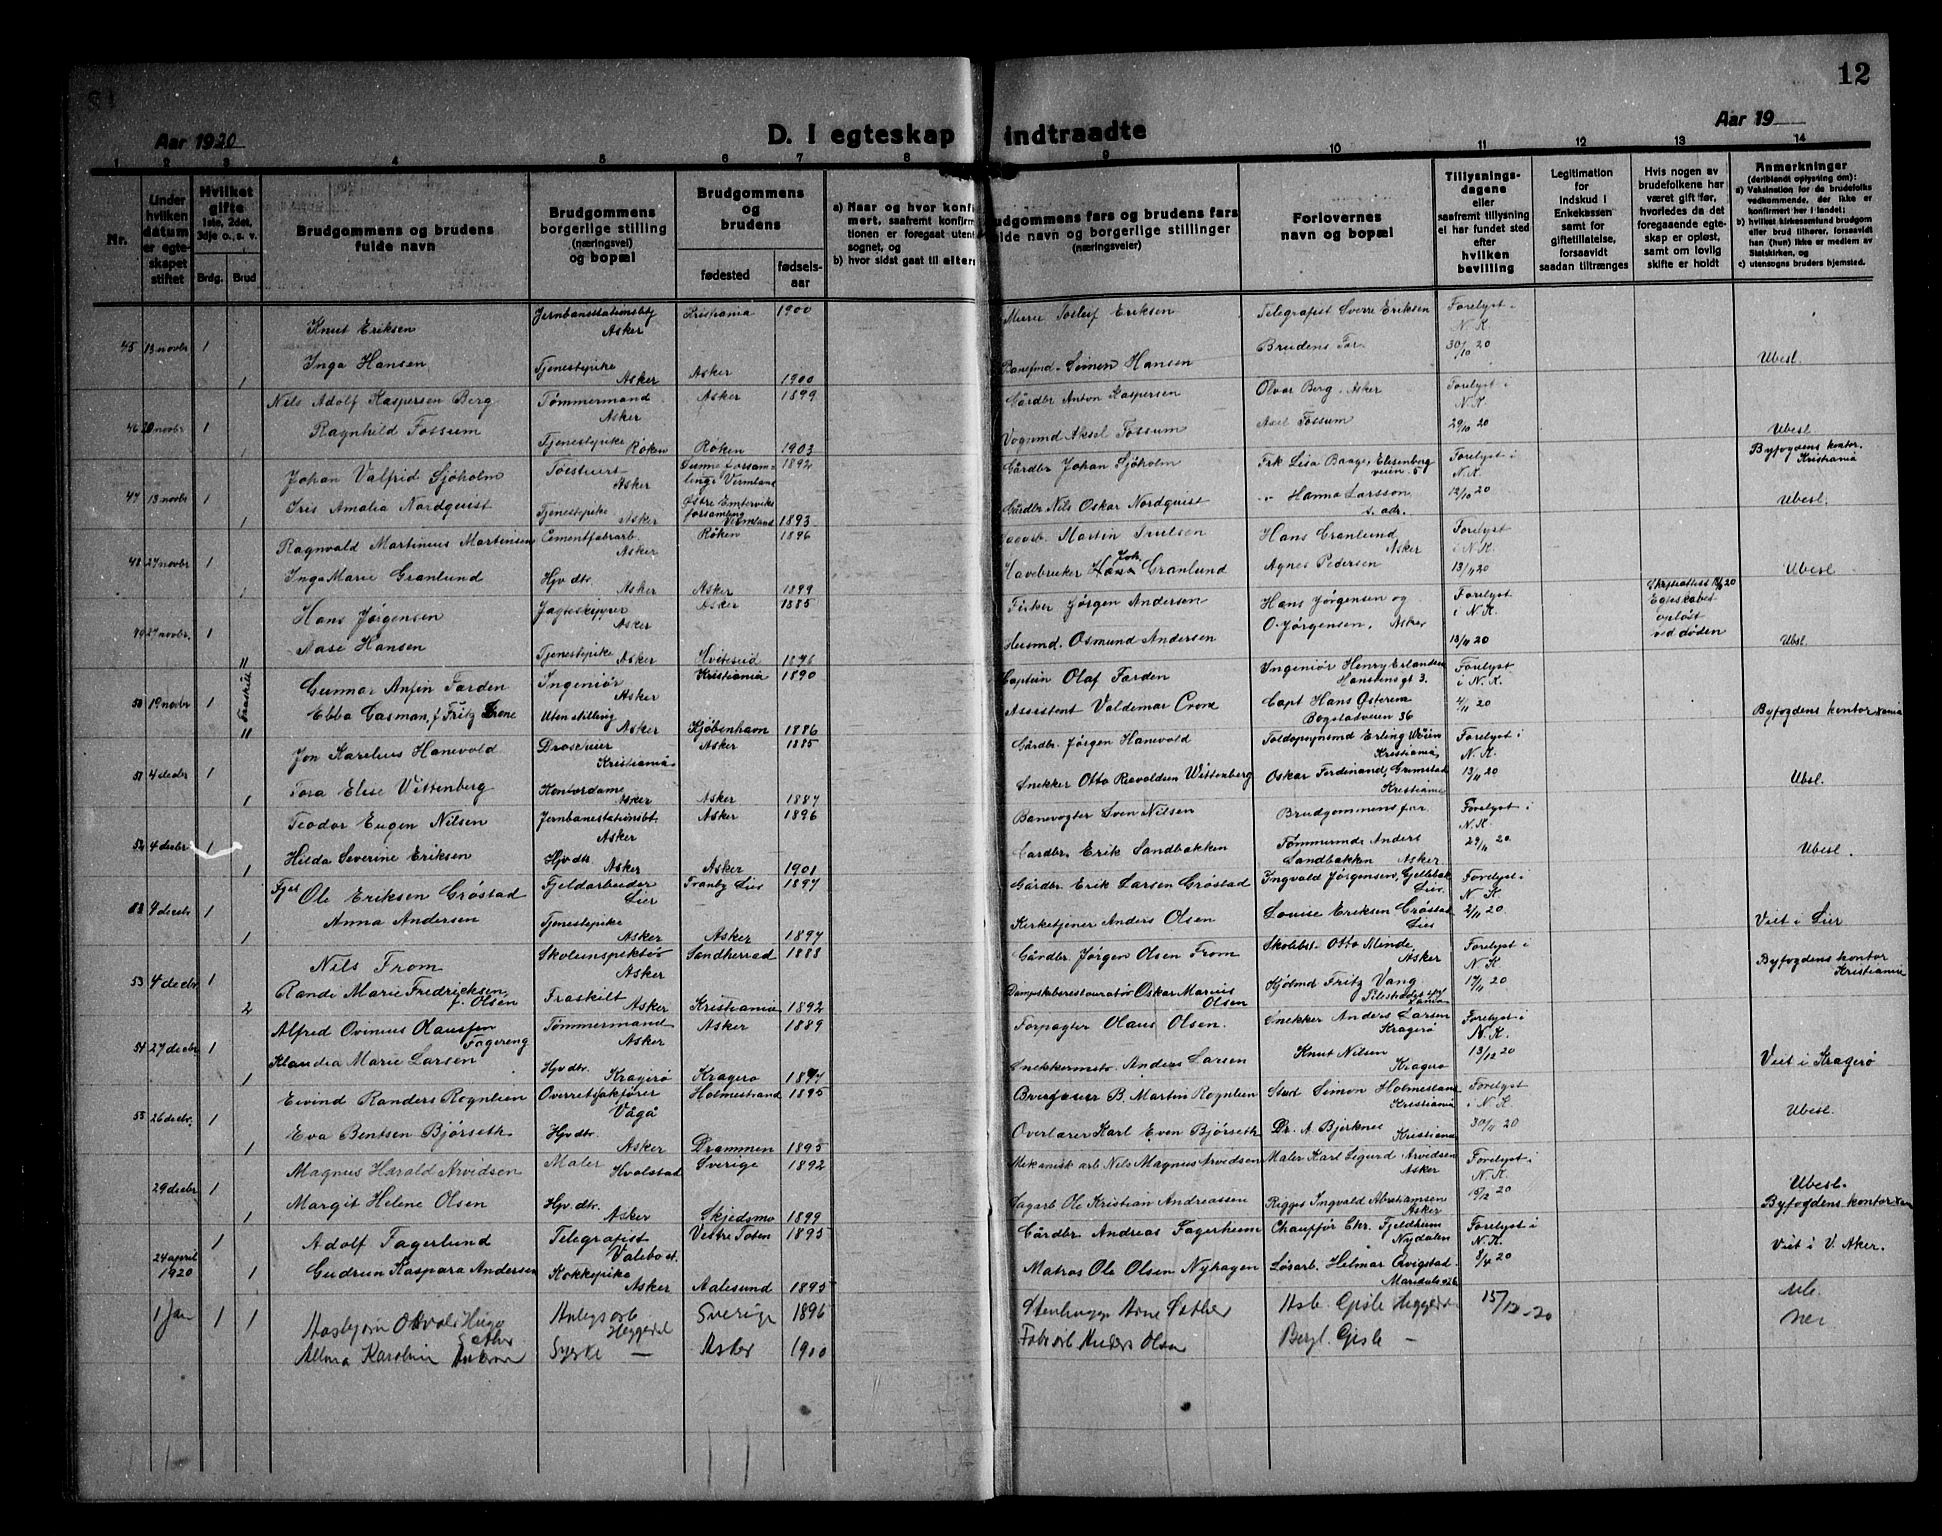 12
Aar 1920
D. I egteskap indtraadte
Aar 19
1 2 3 4 5 6 7 8 9 10 11 12 13 14
Nr.
Under hvilken datum er egteskapet stiftet
Hvilket gifte 1ste, 2det, 3dje o. s. v.
Brdg. Brud
Brudgommens og brudens fulde navn
Brudgommens borgerlige stilling (næringsvei) og bopæl
Brudgommens og brudens
fødested
fødselsaar
a) Naar og hvor konfi
mert, saafremt konfirm
tionen er foregaat uten
sognet, og
b) hvor sidst gaat til alter
udgommens fars og brudens fars
ulde navn og borgerlige stillinger
(næringsveier)
Forlovernes navn og bopæl
Tillysningsdagene eller saafremt tillysning ei har fundet sted efter hvilken bevilling
Legitimation for Indskud i Enkekassen samt for giftetillatelse, forsaavidt saadan tiltrænges
Hvis nogen av brudefolkene har været gift før, hvorledes da det foregaaende egteskap er opløst, samt om lovlig skifte er holdt
Anmerkninger
(deriblandt oplysning om):
a) Vaksination for de brudefolks vedkommende, der ikke er konfirmert her i landet;
b) hvilket kirkesamfund brudgom eller brud tilhører, forsaavidt han (hun) ikke er medlem av Statskirken, og
c) utensogns bruders hjemsted.
45 13 novbr 1 Knut Eriksen Jernbanestationsbtj Asker Kristiania 1900 Murer Tosleif Eriksen Telegrafist Sverre Eriksen Forelyst i N. K.
1 Inga Hansen Tjenestepike Asker Asker 1900 Simen Hansen Brudens Far 30/10 20 Ubesl
46 20 novbr 1 Nils Adolf Kaspersen Berg Tømmermand Asker Asker 1899 Gårdbr Anton Kaspersen Olvar Berg, Asker Forelyst i N. K.
Ragnhild Fossum Tjenestepike Røken Røken 1903 Vognmd Aksel Fossum Axel Fossum 29/10 20 Ubesl
Byfogdens kontor. Kristiania
47 13 novbr 1 Johan Valfrid Sjøholm Asker Gunne forsamlings Vermland 1892 Gårdbr Johan Sjöholm Frk Lisa Baage, Elisenbergveien 5 Forelyst i N. K.
1 Iris Amalia Nordquist Tjenestepike Asker Østre Emterviks forsamling Vermland 1893 Gårdbr Nils Oskar Nordquist " Hanna Larsson s. adr. 12/10 20 Ubesl.
48 27 novbr 1 Ragnvald Martinius Martinsen Cementfabrarb Asker Røken 1896 Martin Truelsen Hans Granlund Asker Forelyst i N. K.
1 Inga Marie Granlund Hjv. dtr. Asker Asker 1899 Havebruker Joh. Granlund Agnes Pedersen 13/11 20 Ubesl
49 27 novbr. 1 Hans Jørgensen Jagteskipper Asker Asker 1885 Fisker Jørgen Andersen Hans Jørgensen og O. Jørgensen, Asker Forelyst i N. K.
Egteskabet opløst ved døden
11 Aase Hansen Tjenestepike Asker Hvitesid 1876 Husmd. Osmund Andersen 13/11 20 Ubsl.
50 19 novbr 1 Gunnar Anfin Farden Ingeniør Asker Kristiania 1890 Captein Olaf Farden Ingeniør Henry Erlandsen Hanstensgt 3. Forelyst i N. K.
Fraskilt 11 Ebba Casman, f. Fritz Crone Uten stilling Asker Kjøbenhavn 1886 Assistent Valdemar Crone Capt Hans Østerem Bogstadveien 36 4/11 20 Byfogdens kontor Kania
51 4 decbr 1 Jon Karelius Hanevold Droscheier Kristiania Asker 1885 Gårdbr. Jørgen Hanevold Toldopsynsmd Erling Kristiania Forelyst i N. K.
1 Tora Elise Wittenberg Kontordame Asker Asker 1887 Snekker Otto Wittenberg Oskar Ferdinand Grimstad Kristiania 13/11 20 Ubsl.
52 4 decbr 1 Teodor Eugen Nilsen Jernbanestationsbt. Asker Asker 1896 Banevogter Sven Nilsen Brudgommens far Forelyst i N. K.
1 Hilda Severine Eriksen Hjv dtr. Asker Asker 1901 Gardbr. Erik Sandbakken Tømmermd Anders Sandbakken Asker 29/11 20 Ubesl.
4 decbr 1 Ole Eriksen Grøstad Fjeldarbeider Lier Tranby Lier 1897 Gårdbr. Erik Larsen Grøstad Ingvald Jørgensen, Lier Forelyst i N. K.
1 Anna Andersen Tjenestepike Asker Asker 1897 Kirketjener Anders Olsen Louise Eriksen Grøstad Lier 2/11 20 Viet i Lier
53 4 decbr 1 Nils From Skoleinspektør Asker Sandherrad 1888 Gårdbr. Jørgen Olsen From Skolebst. Otto Minde, Asker Forelyst i N K Byfogdens kontor Kristiania
2 Randi Marie Fredricksen, f. Olsen Fraskilt Asker Kristiania 1892 Dampskibsrestauratør Oskar Marius Olsen Fritz Vang 17/11 20
54 27 decbr 1 Alfred Ovinius Olaussen Fagereng Tømmermand Asker Asker 1889 Forpagter Olaus Olsen. Snekker Anders Larsen Kragerø Forelyst i N. K.
1 Klaudia Marie Larsen Hjv dtr. Kragerø Kragerø 1897 Snekkermstr. Anders Larsen Knut Nilsen Kragerø 13/12 20 Viet i Kragerø
55 26 decbr. 1 Eivind Randers Rognlien Overretssakfører Vågå Holmestrand 1895 B. Martin Rognlien Stud Simon Holmesland Kristiania Forelyst i N. K.
1 Eva Bentsen Bjørseth Hjv dtr. Asker Drammen 1895 Overlærer Karl Even Bjørseth Dr. A Bjerknes Kristiania 30/11 20 Ubesl.
29 decbr 1 Magnus Harald Arvidsen Maler Hvalstad Sverige 1892 Mekanisk arb Nils Magnus Arvidsen Maler Karl Sigurd Arvidsen Asker Forelyst i N. K. Ubesl.
1 Margit Helene Olsen Hjv. dtr. Asker Skjedsmo 1899 Sagarb Ole Kristian Andreassen Ingvald Abrahamsen Asker 15/12 20 Byfogdens kontor Kania
24 april 1920 1 Adolf Fagerlund Telegrafist Vestre Toten 1895 Gårdbr. Andreas Fagerheim Chauffør Chr. Fjeldheim Nydalen Forelyst i N. K. Viet i V. Aker.
1 Gudrun Kaspara Andersen Kokkepike Asker Aalesund 1895 Matros Ole Olsen Nyhagen Løsarb. Helmar Qvigstad 8/4 20
1 Jan 1 1 Hugo Sæther Anlegsarb Heggedal Sverige 1896 Arne Sæther Arb. Gisle Heggedal 15/12-20
Alma Karoline Syerske — Asker 1900 Fabrarb Anders Olsen Bergl. Gisle — nei